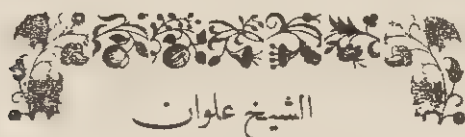 الشيخ علوان